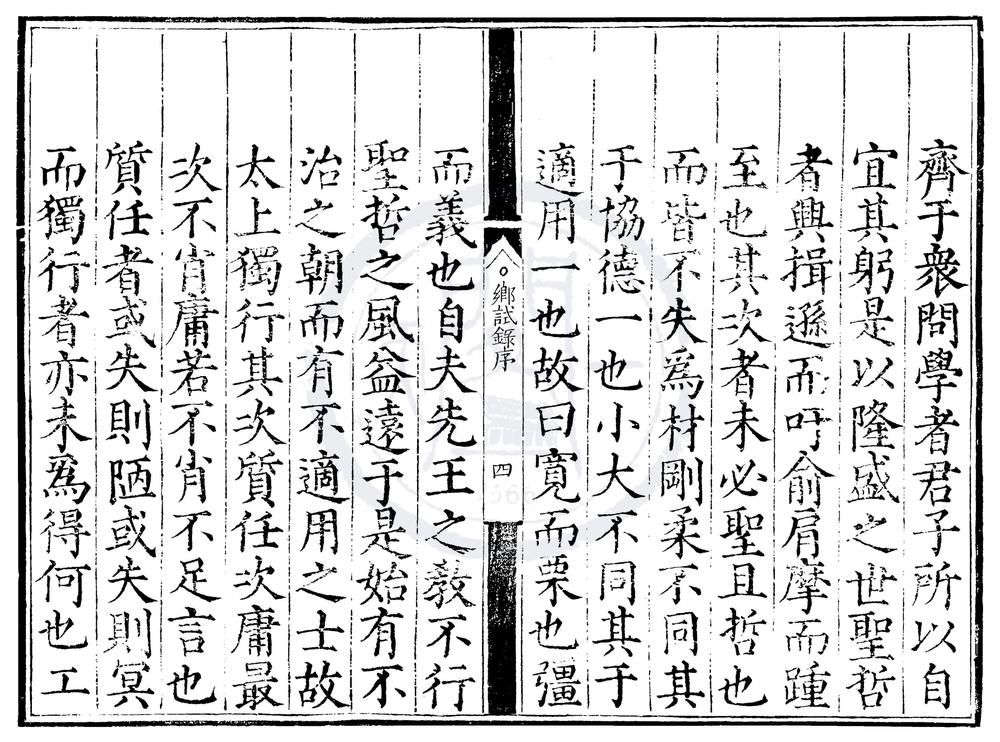 齊于衆問學者君子所以自
宜其躬是以隆盛之世聖哲
者興揖遜而吁俞肩摩而踵
至也其次者未必聖且哲也
而皆不失爲材剛柔不同其
于協德一也小大不同其于
適用一也故曰寬而栗也彊
鄉試錄序
四
而義也自夫先王之敎不行
聖哲之風益遠于是始有不
治之朝而有不適用之士故
太上獨行其次質任次庸最
次不肖庸若不肖不足言也
質任者或失則陋或失則冥
而獨行者亦未爲得何也工